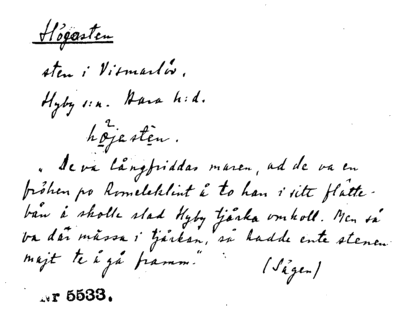 Högasten
sten i Vismarlöv,
Hyby s:n. Bara h:d.
höjastēn.
„De va långfriddas maren, ad de va en
fröken po Romeleklint å to han i sitt flätte-
bån å skolle slad Hyby tjårka omkoll. Men så
va där mässa i tjårkan, så hadde ente stenen
majt te å gå framm."
(Sägen)
Nr 5533.